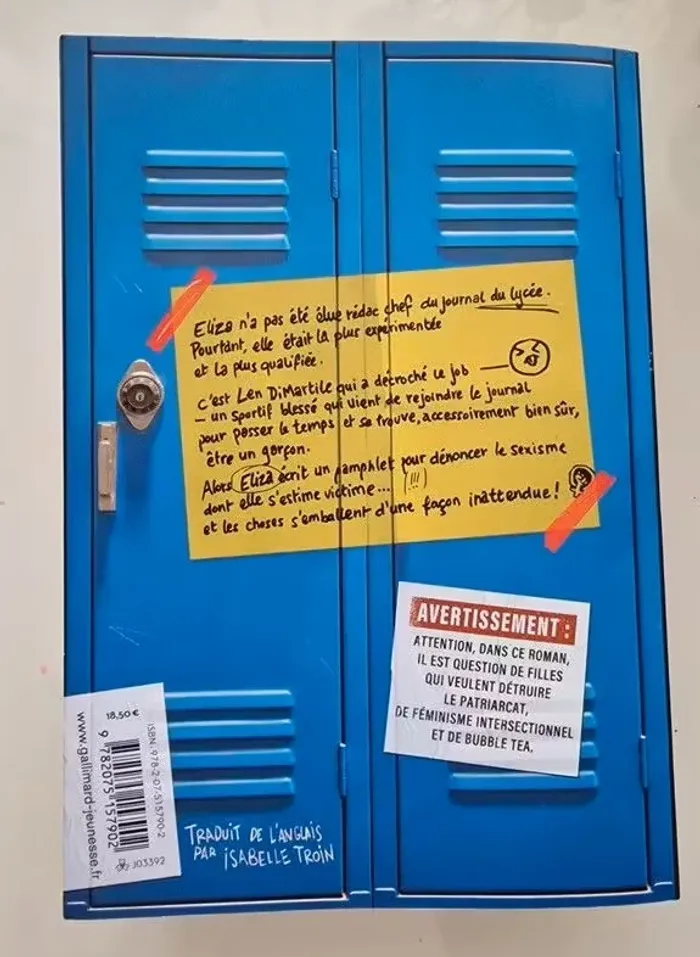 Eliza n'a pas été élue rédac chef du journal du lycée.
Pourtant, elle était la plus expérimentée
et la plus qualifiée.
C'est Len DiMartile qui a décroché le job
– un sportif blessé qui vient de rejoindre le journal
pour passer le temps et se trouve, accessoirement bien sûr,
être un garçon.
Alors Eliza écrit un pamphlet pour dénoncer le sexisme
dont elle s'estime victime... (!!!)
et les choses s'emballent d'une façon inattendue !
AVERTISSEMENT :
ATTENTION, DANS CE ROMAN,
IL EST QUESTION DE FILLES
QUI VEULENT DÉTRUIRE
LE PATRIARCAT,
DE FÉMINISME INTERSECTIONNEL
ET DE BUBBLE TEA.
18,50 €
www.gallimard-jeunesse.fr
9 782075 157902
ISBN: 978-2-07-515790-2
J03392
TRADUIT DE L'ANGLAIS
PAR ISABELLE TROIN